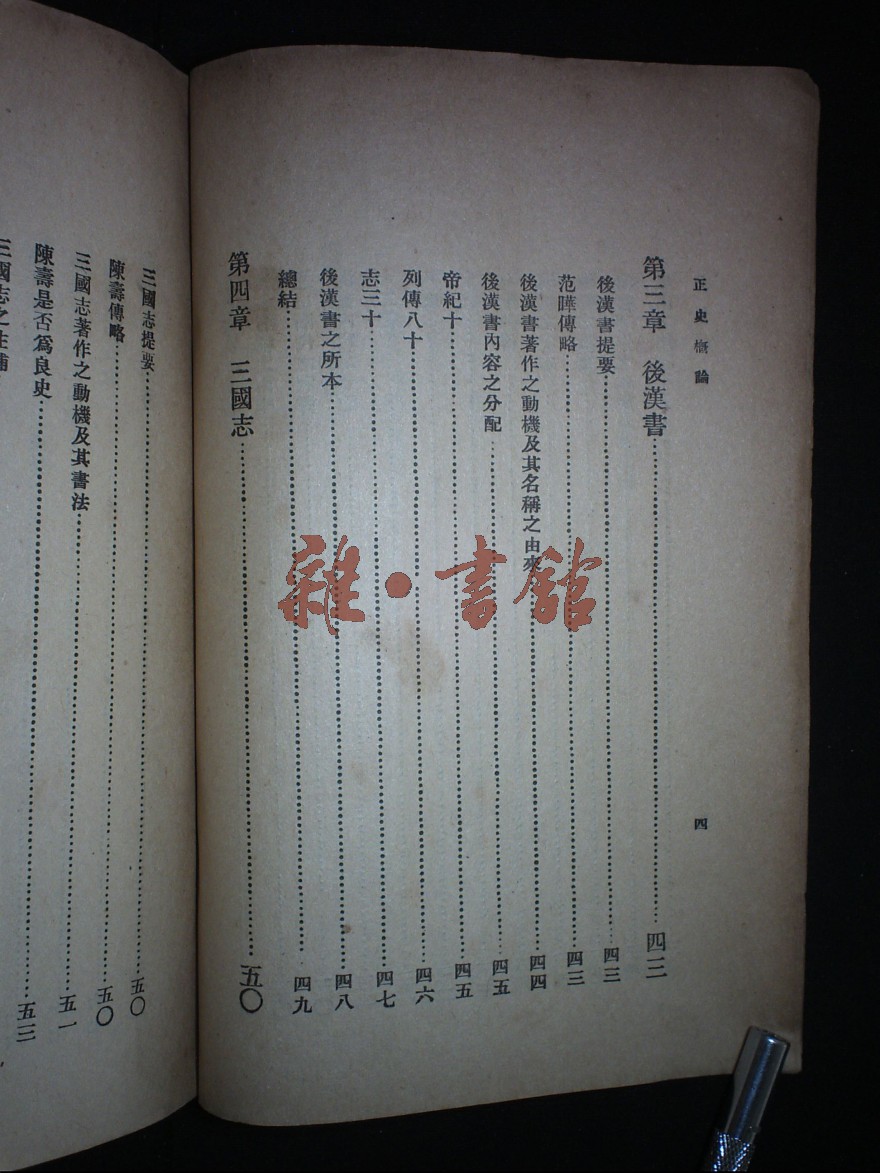 正史概論
四
第三章　後漢書……四三
後漢書提要……四三
范曄傳略……四三
後漢書著作之動機及其名稱之由來……四四
後漢書內容之分配……四五
帝紀十……四五
列傳八十……四六
志三十……四七
後漢書之所本……四八
總結……四九
第四章　三國志……五〇
三國志提要……五〇
陳壽傳略……五〇
三國志著作之動機及其書法……五一
陳壽是否爲良史……五三
三國志之注補
雜·書館